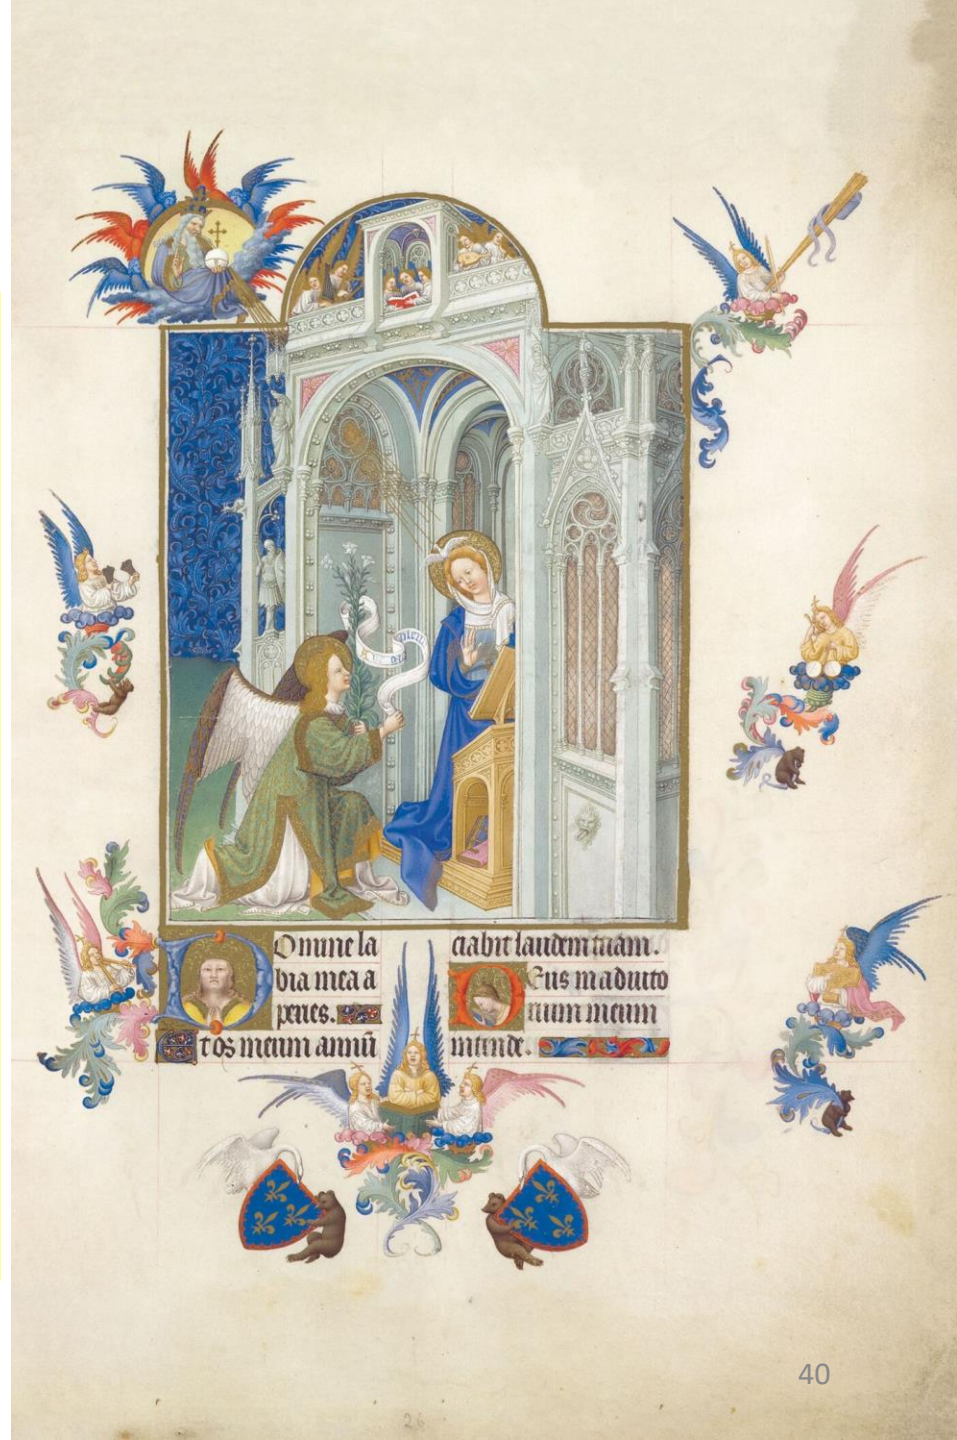 Domine la
bia mea a
peries.
Et os meum annū
ciabit laudem tuam.
Deus in adiuto
rium meum
intende.
40
26